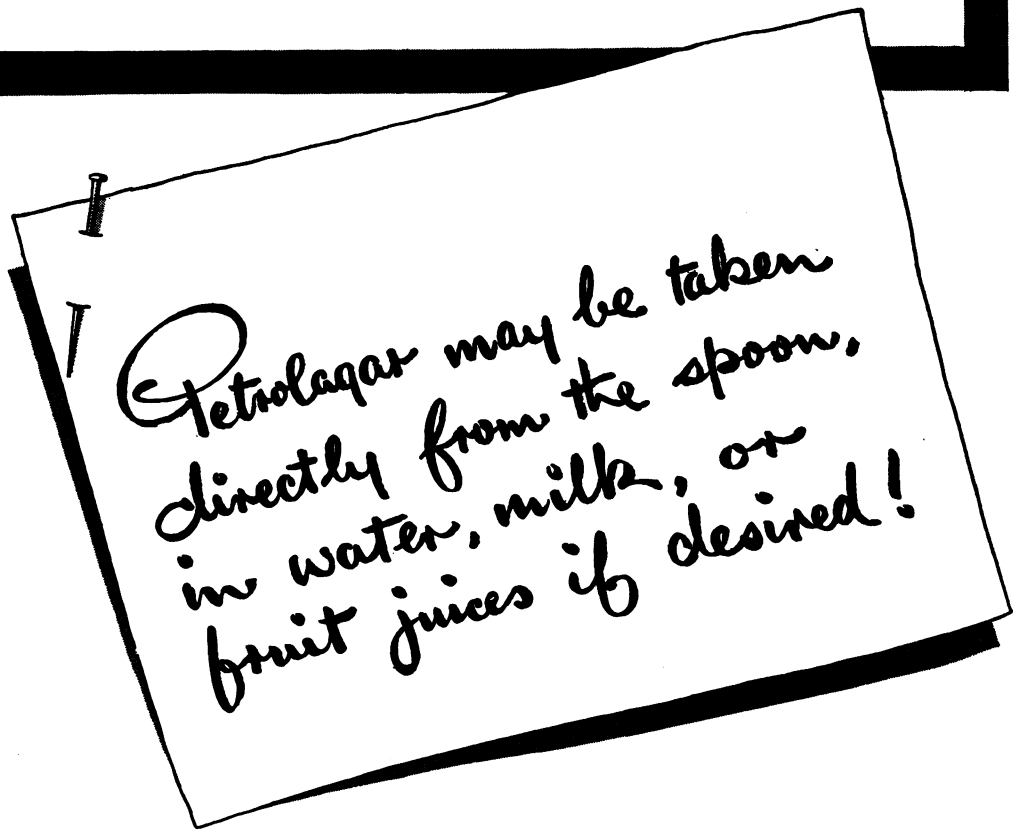 Petrolagar may be taken
directly from the spoon,
in water, milk, or
fruit juices if desired!